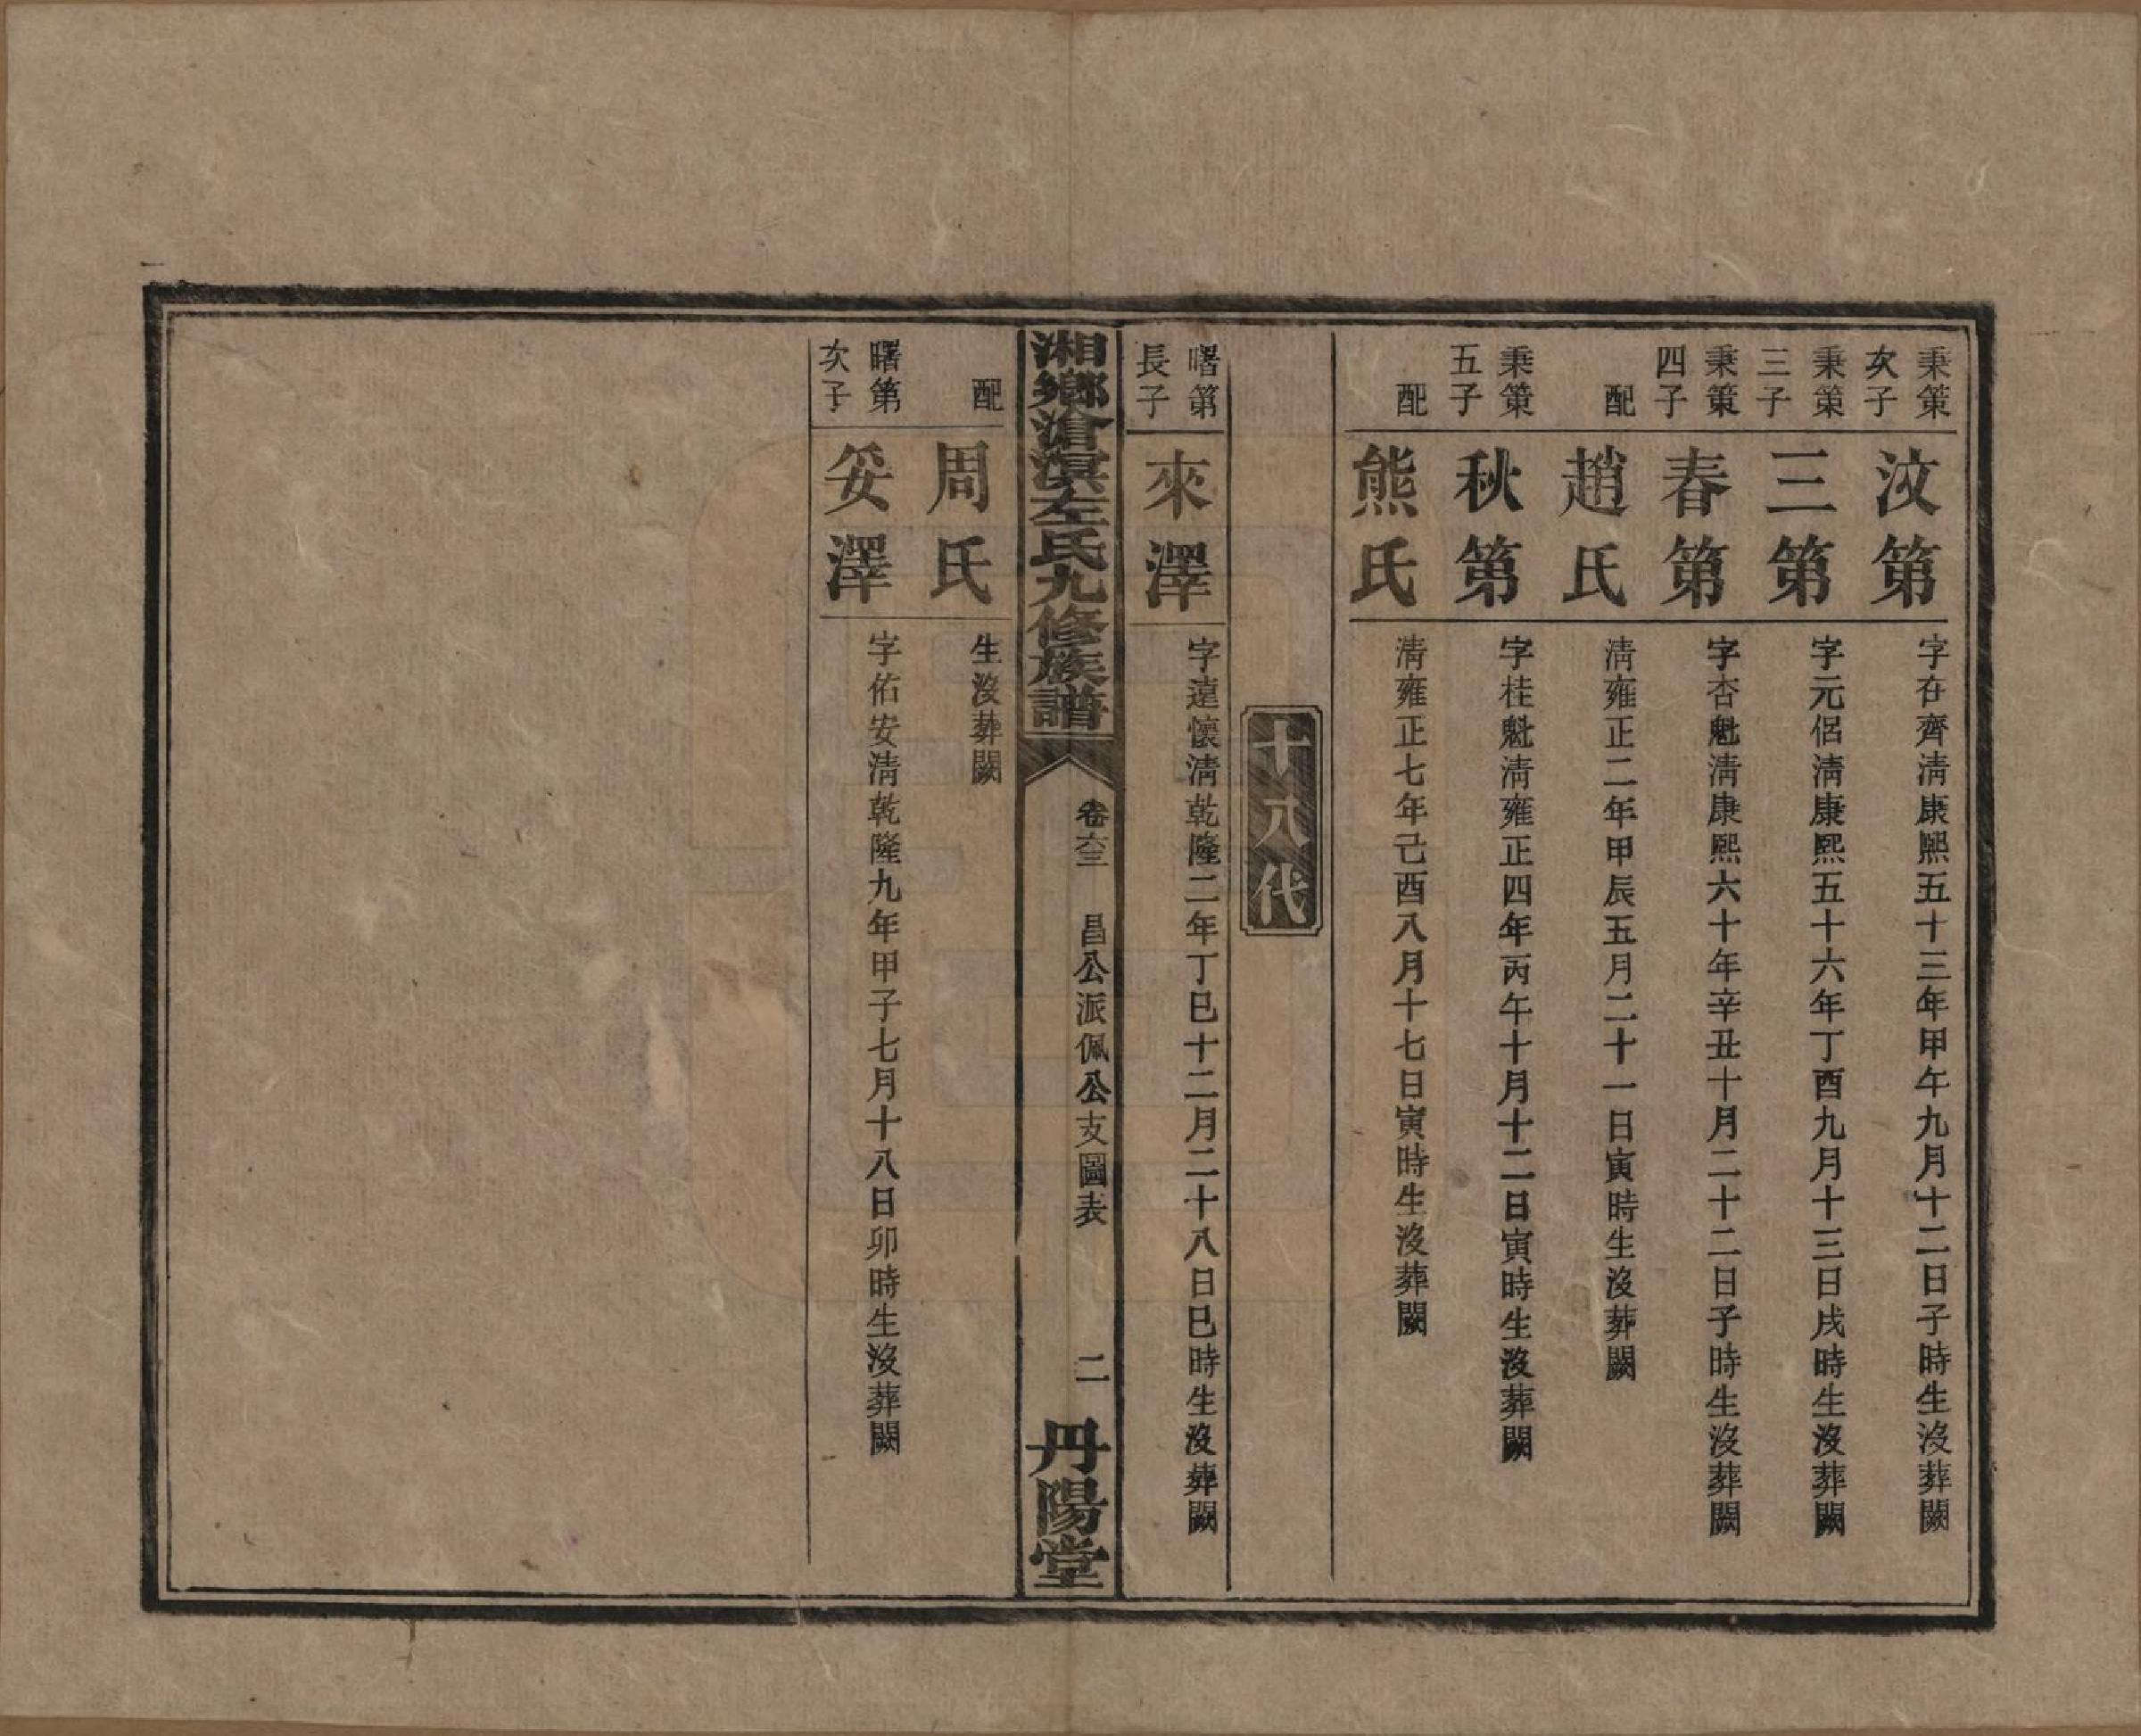 秉策次子
汶第
字在齊清康熙五十三年甲午九月十二日子時生沒葬闕
秉策三子
三第
字元侶清康熙五十六年丁酉九月十三日戌時生沒葬闕
秉策四子
春第
字杏魁清康熙六十年辛丑十月二十二日子時生沒葬闕
配
趙氏
清雍正二年甲辰五月二十一日寅時生沒葬闕
秉策五子
秋第
字桂魁清雍正四年丙午十月十二日寅時生沒葬闕
配
熊氏
清雍正七年己酉八月十七日寅時生沒葬闕
十八代
曙第長子
來澤
字遠懷清乾隆二年丁巳十二月二十八日巳時生沒葬闕
湘鄉滄溟左氏九修族譜
卷六三
昌公派佩公支圖表
二
丹陽堂
配
周氏
生沒葬闕
曙第次子
妥澤
字佑安清乾隆九年甲子七月十八日卯時生沒葬闕